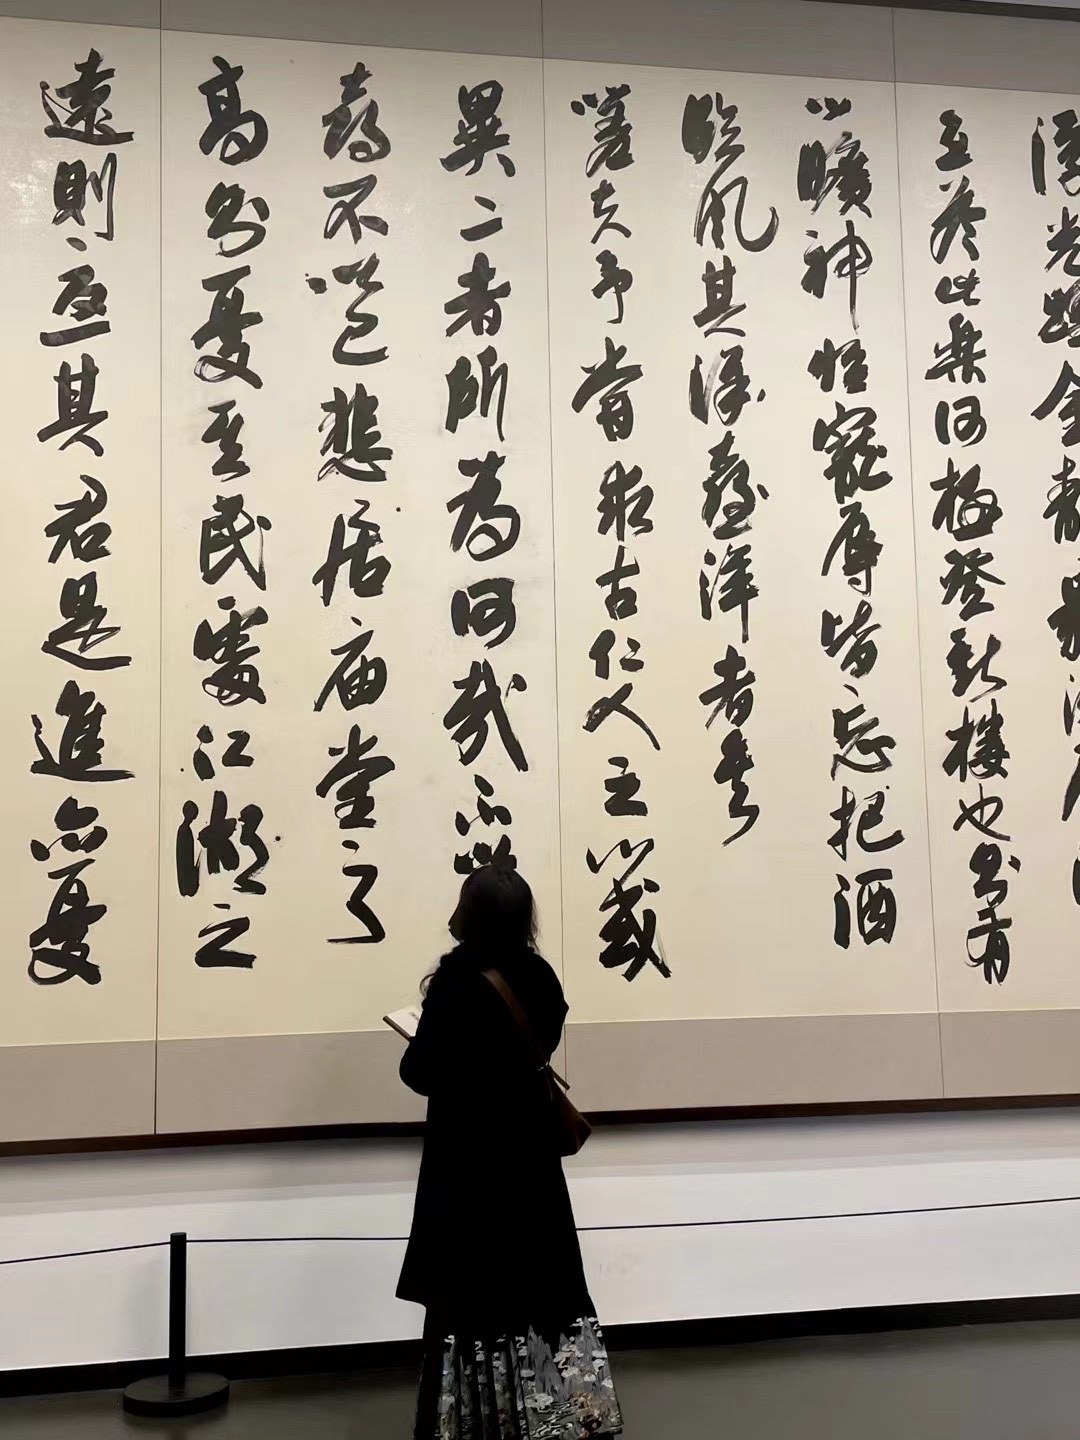 浮光躍金靜影
互答此樂何極登斯樓也則有
心曠神怡寵辱皆忘把酒
臨風其洋喜洋者矣
嗟夫予嘗求古仁人之心或
異二者所為何哉不以
喜不以己悲居庙堂之
高則憂至民處江湖之
遠則其君是進亦憂